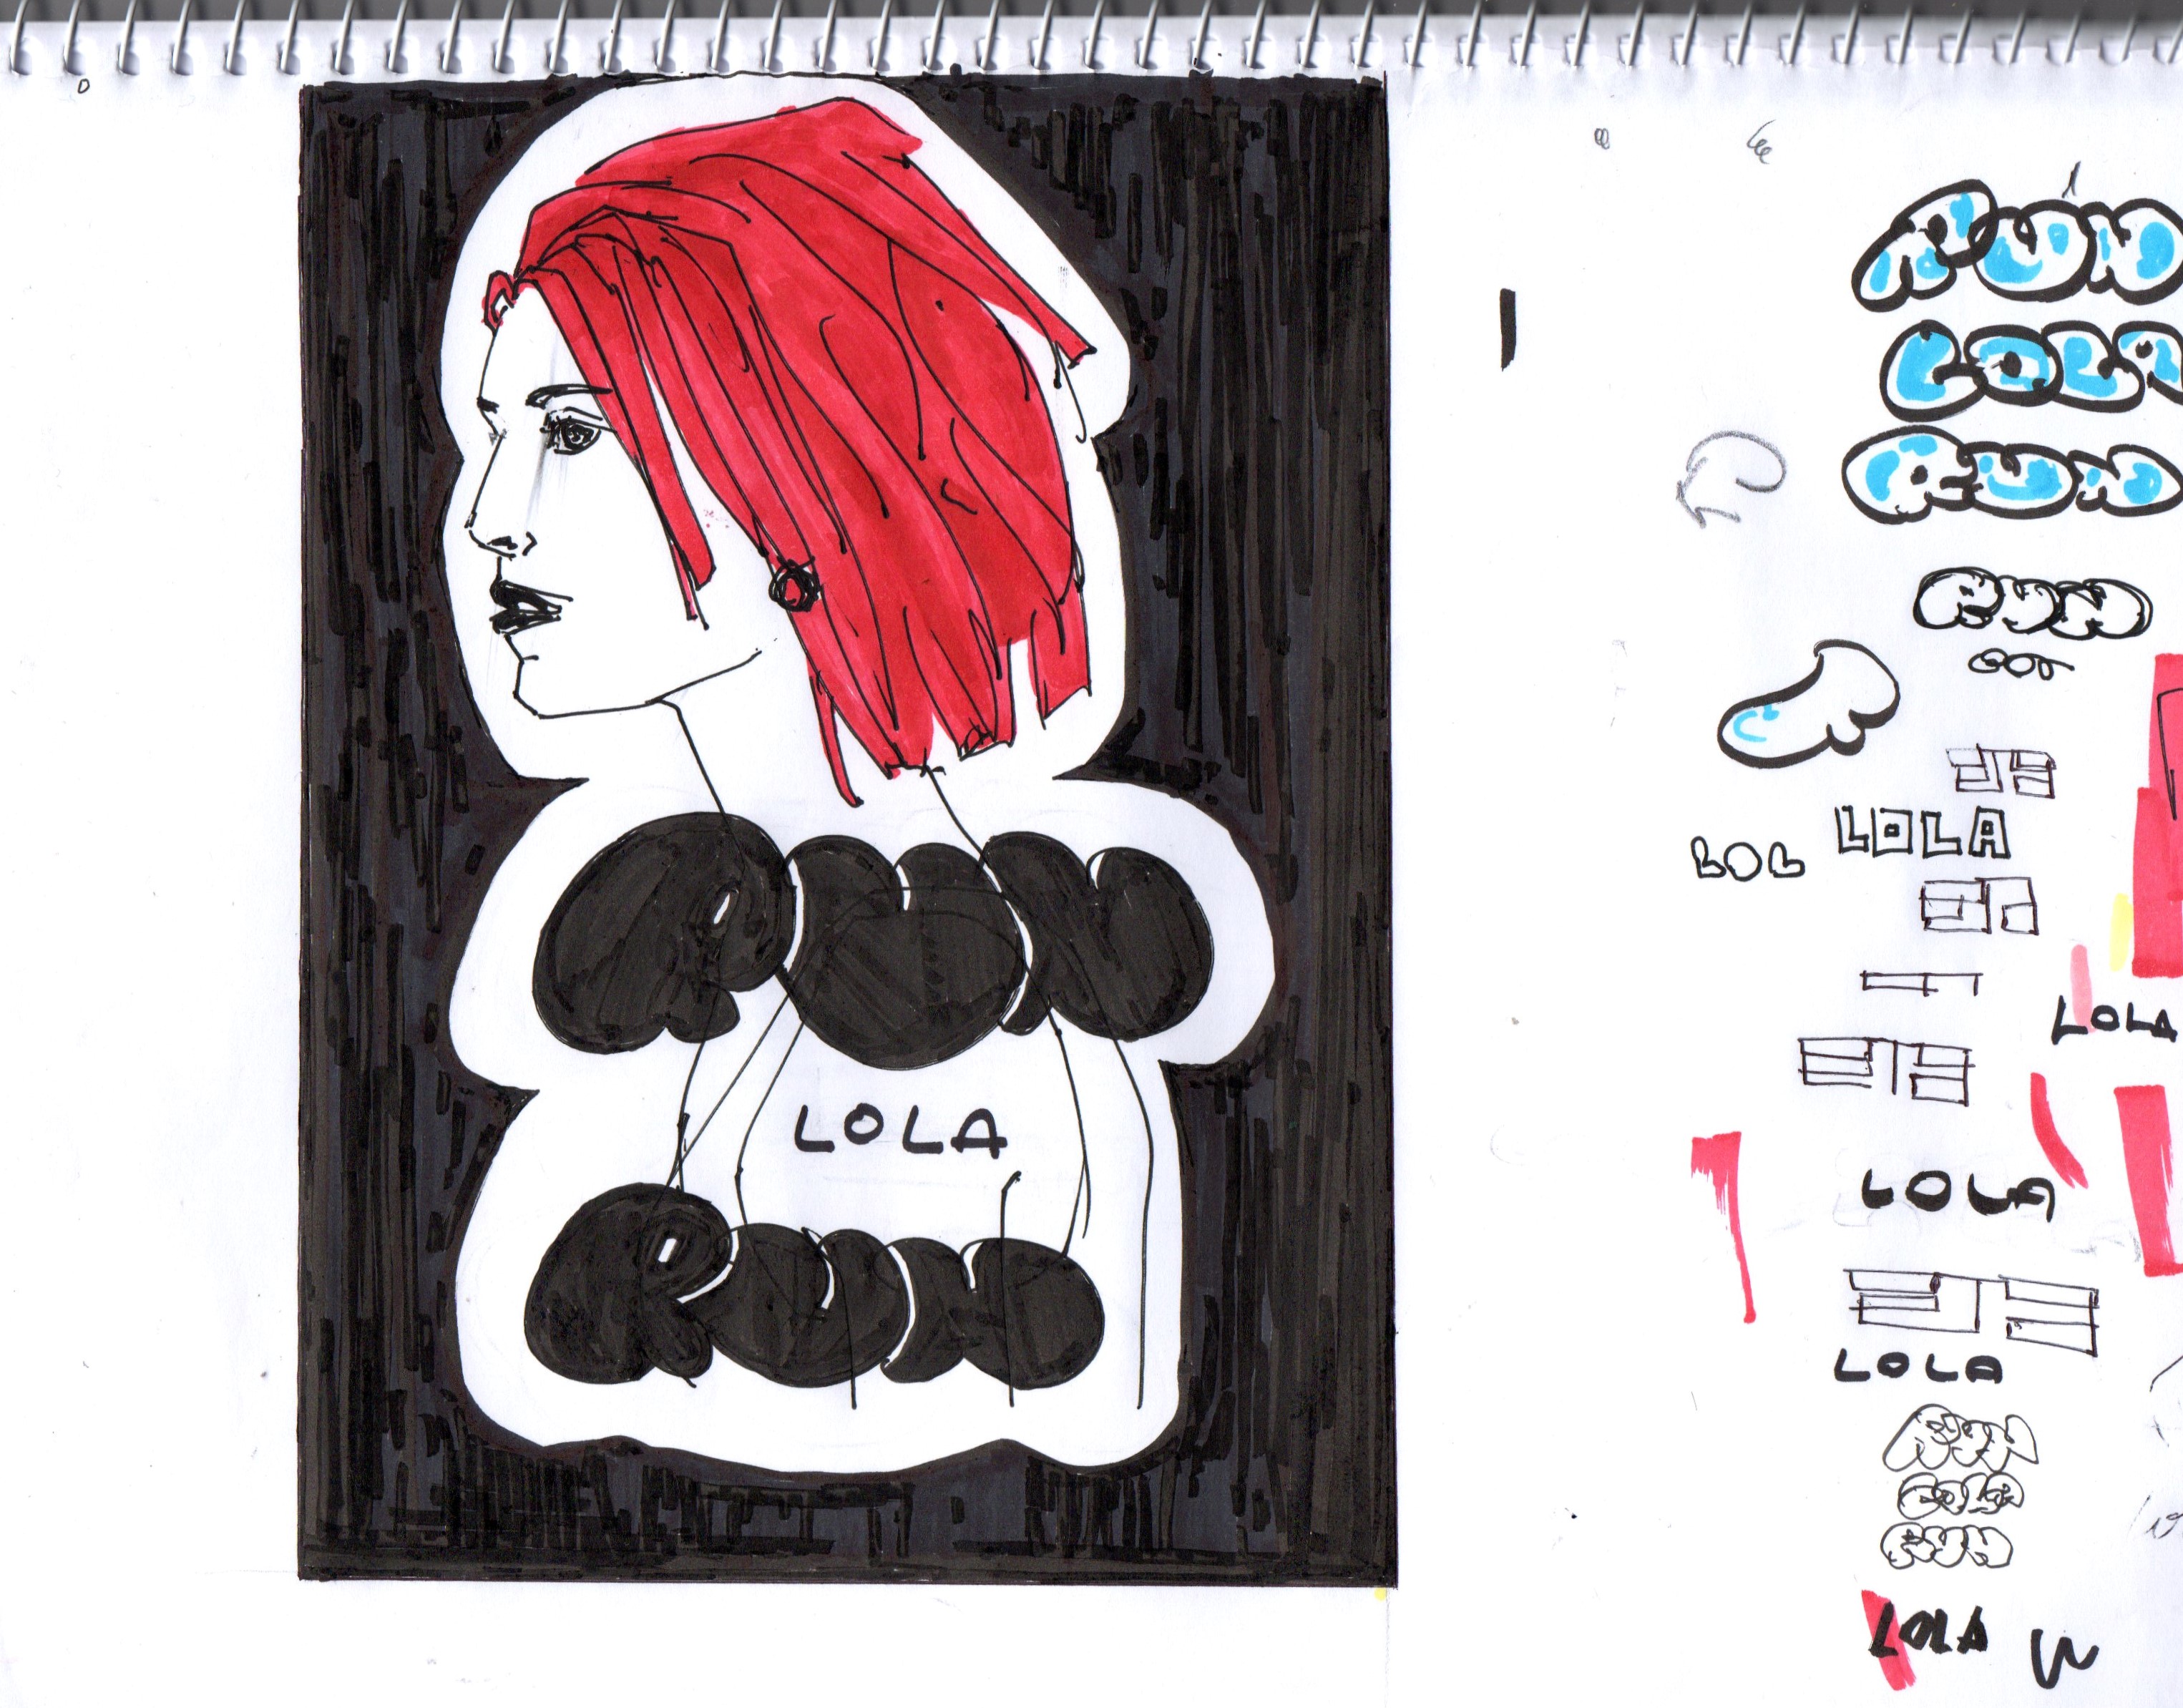 RUN
LOLA
RUN
RUN
LOLA
RUN
RUN
LOL
LOLA
LOLA
LOLA
LOLA
RUN
LOLA
RUN
LOLA